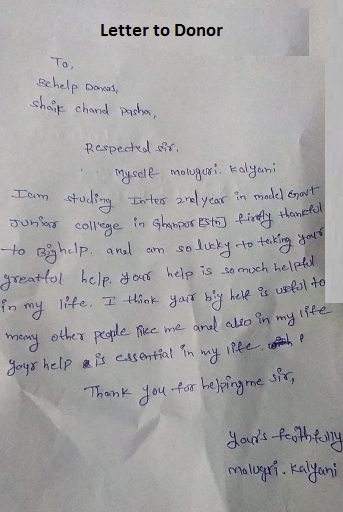 Letter to Donor
To,
Behelp Donars,
Shaik chand pasha,
Respected sir.
Myself moluguri. Kalyani
Iam studing Inter 2nd year in model Govt
Junior college in Ghanpur [Stn] firstly thankful
to Bighelp. and am so lucky to taking your
greatful help. your help is so much helpful
in my life. I think your big help is useful to
many other people like me and also in my life
your help is essential in my life.
Thank you for helping me sir,
your's faithfully
moluguri. Kalyani